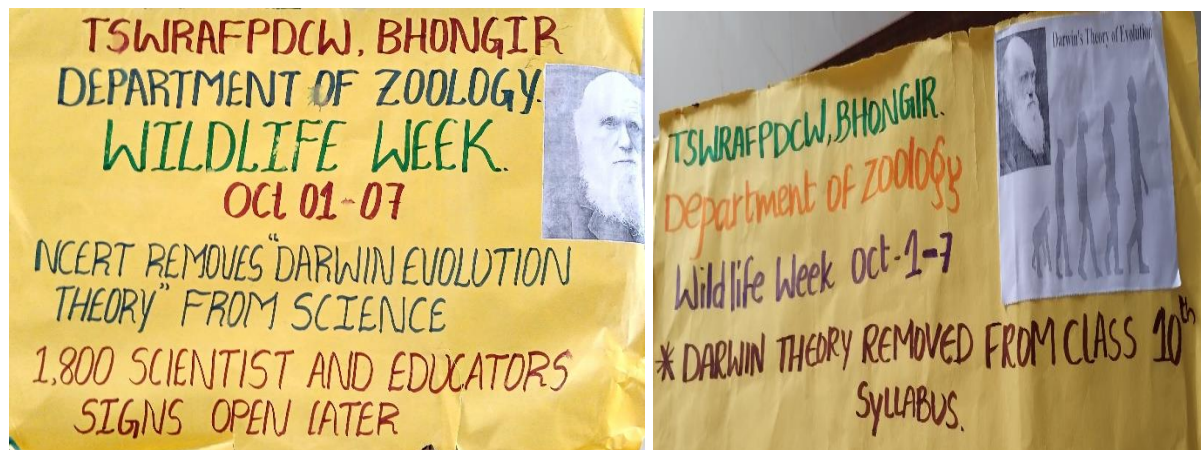 TSWRAFPDCW, BHONGIR
DEPARTMENT OF ZOOLOGY.
WILDLIFE WEEK.
OCt 01-07
NCERT REMOVES "DARWIN EVOLUTION
THEORY" FROM SCIENCE
1,800 SCIENTIST AND EDUCATORS
SIGNS OPEN LATER
Darwin's Theory of Evolution
TSWRAFPDCW, BHONGIR.
Department of Zoology
Wildlife Week Oct-1-7
* DARWIN THEORY REMOVED FROM CLASS 10th
SYLLABUS.